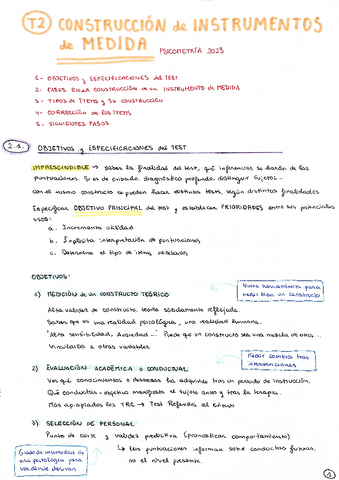 T2 CONSTRUCCIÓN de INSTRUMENTOS
de MEDIDA PSICOMETRÍA 2023
1- OBJETIVOS y ESPECIFICACIONES del TEST
2- FASES EN LA CONSTRUCCIÓN de un INSTRUMENTO de MEDIDA
3- TIPOS de ITEMS y SU CONSTRUCCIÓN
4- CORRECCIÓN de los ITEMS
5- SIGUIENTES PASOS
2.1. OBJETIVOS y ESPECIFICACIONES del TEST
IMPRESCINDIBLE → saber la finalidad del test, qué inferencias se harán de las
puntuaciones. Si es de cribado, diagnóstico profundo, distinguir sujetos...
Con el mismo constructo se pueden hacer distintos tests, según distintas finalidades
Especificar OBJETIVO PRINCIPAL del test y establecer PRIORIDADES entre sus potenciales
usos:
a. Incrementa utilidad
b. Explicita interpretación de puntuaciones
c. Determina el tipo de items necesarios
OBJETIVOS:
1) MEDICIÓN de un CONSTRUCTO TEÓRICO
herramienta para
medir bien un constructo
Alta validez de constructo, teoría sólidamente reflejada.
Saber que es una realidad psicológica, una realidad humana.
"Alta sensibilidad, Ansiedad..." Puede que un constructo sea una mezcla de otros...
Vincularlo a otras variables.
2) EVALUACIÓN ACADÉMICA o CONDUCTUAL
Medir cambios tras
intervenciones
Ver qué conocimientos o destrezas ha adquirido tras un periodo de instrucción.
Qué conductas-objetivo manifiesta el sujeto antes y tras la terapia.
Más apropiados los TRC → Test Referidos al Criterio
3) SELECCIÓN DE PERSONAL
Punto de corte y validez predictiva (pronosticar comportamiento)
↳ las puntuaciones informan sobre conductas futuras,
no el nivel presente.
Grado de intensidad de
una patología para
ver dónde derivar
1